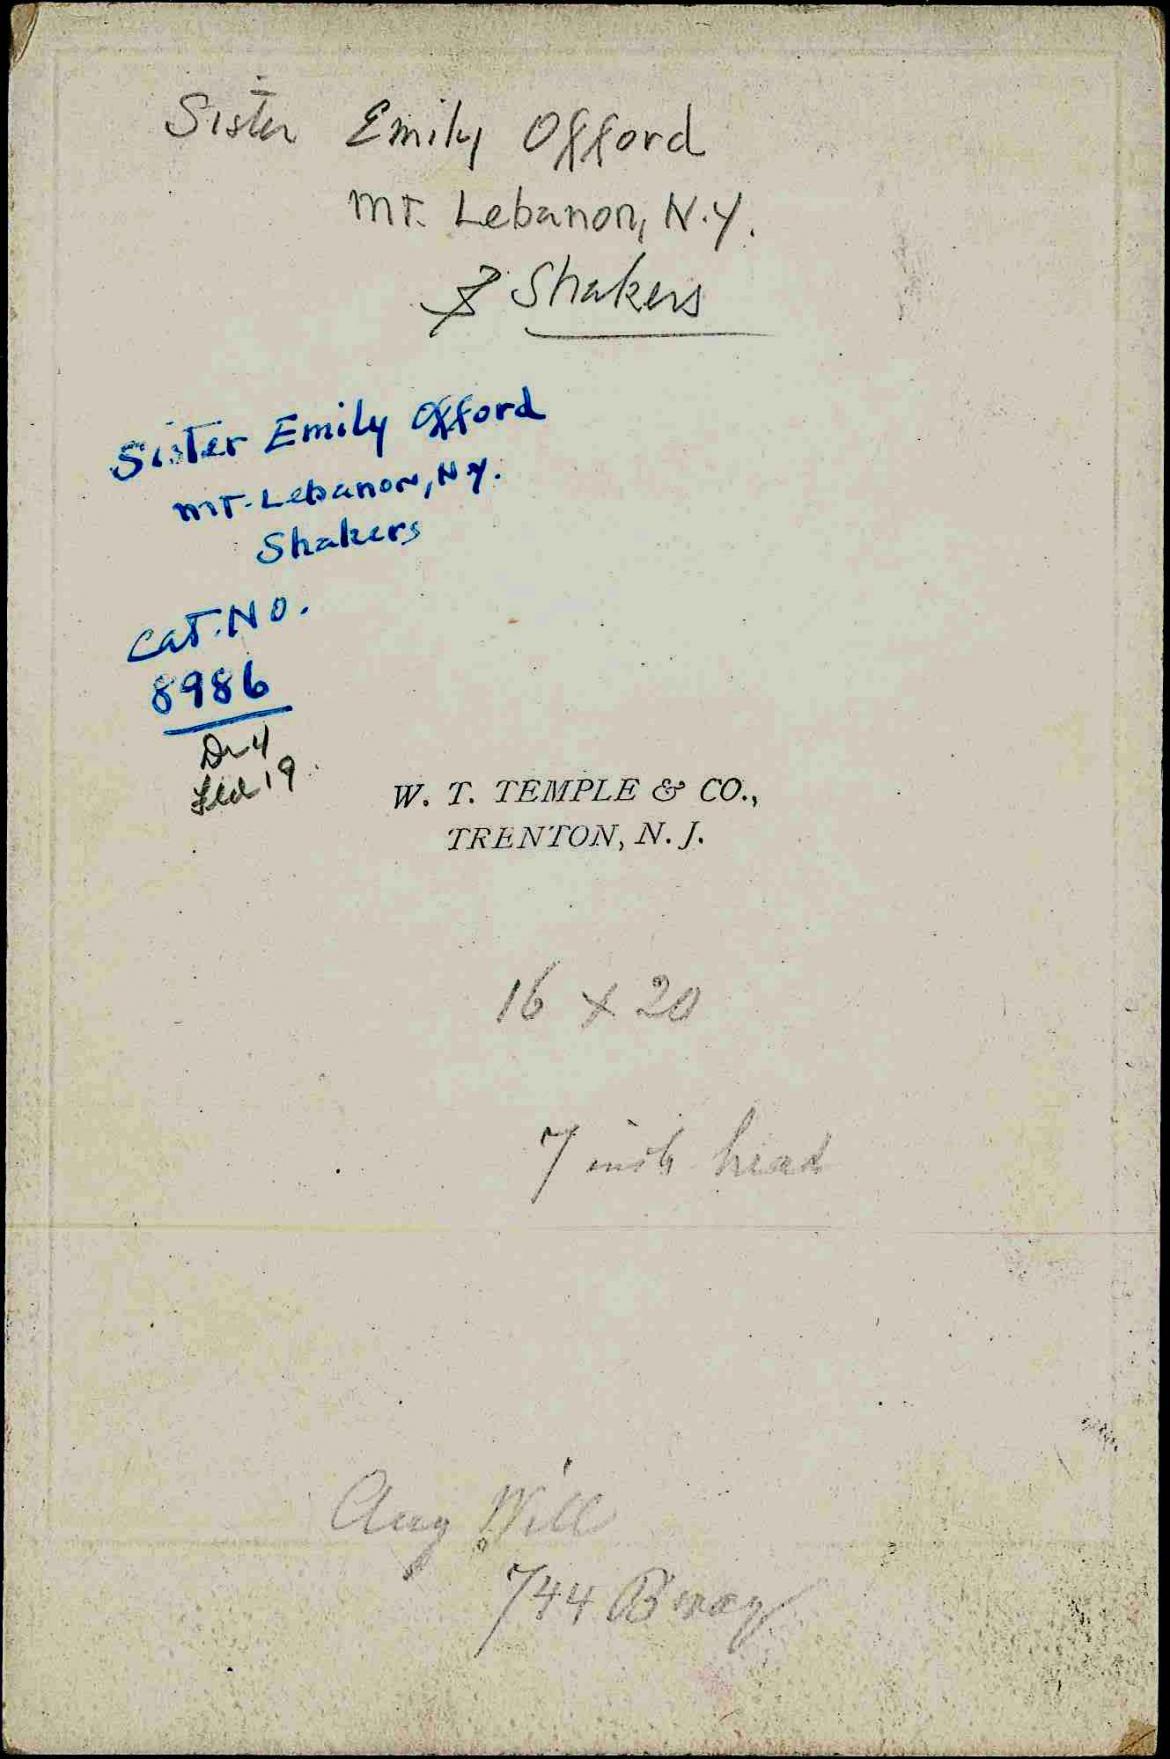 Sister Emily Offord
Mt. Lebanon, N.Y.
Shakers
Sister Emily Offord
Mt. Lebanon, N.Y.
Shakers
Cat. No.
8986
Dr 4
Fld 19
W. T. TEMPLE & CO.,
TRENTON, N. J.
16 x 20
7 inch head
Aug Will
744 Bway